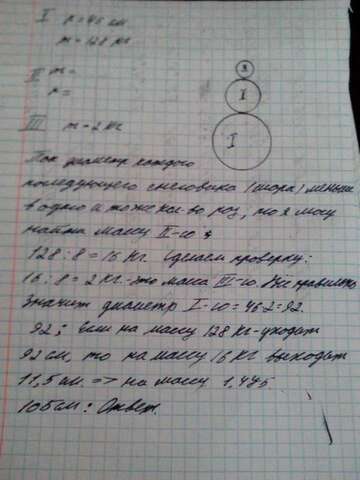 I r = 46 см.
m = 128 кг
3
II m =
r =
I
III m = 2 кг
I
Так диаметр каждого
последующего снеговика (шара) меньше
в одно и тоже кол-во раз, то я могу
найти массу II-го
128 : 8 = 16 кг. Сделаем проверку:
16 : 8 = 2 кг - это масса III-го. Всё правильно
значит диаметр I-го = 46·2 = 92.
92; Если на массу 128 кг уходит
92 см, то на массу 16 кг выходит
11,5 см. => на массу 1,4375.
105 см : Ответ.